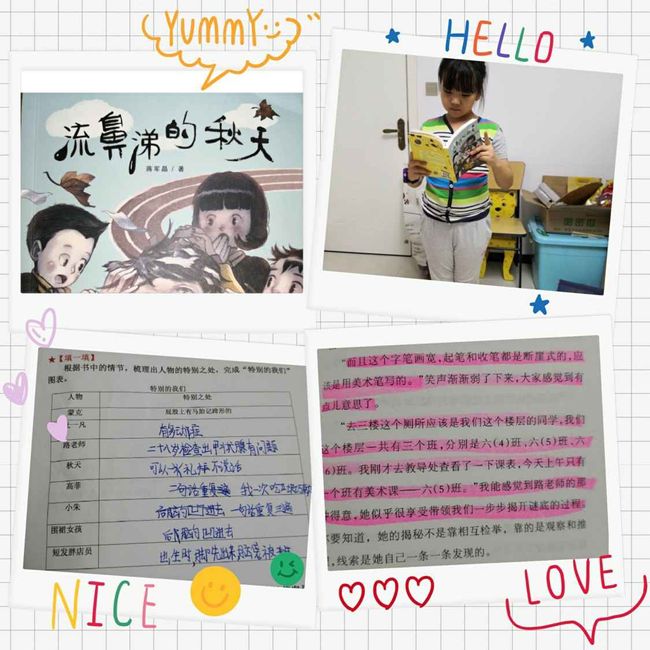 YUMMY
HELLO
流鼻涕的秋天
蒋军晶/著
★【填一填】
根据书中的情节，梳理出人物的特别之处，完成“特别的我们”
图表。
特别的我们
人物 特别之处
蒙克 屁股上有马胎记跨形的
一凡 有多动症
路老师 二十八岁检查出甲状腺有问题
秋天 可以一次礼拜不说话
高菲 一句话重复三遍
小朱 后脑勺凹进去 一句话重复三遍
围裙女孩 后脑勺凹进去
短发胖店员 出生时,脚先出来
“而且这个字笔画宽，起笔和收笔都是断崖式的，应
该是用美术笔写的。”笑声渐渐弱了下来，大家感觉到有
点儿意思了。
“去三楼这个厕所应该是我们这个楼层的同学，我们
这个楼层一共有三个班，分别是六(4)班、六(5)班、六
(6)班。我刚才去教导处查看了一下课表，今天上午只有
一个班有美术课——六(5)班。”我能感觉到路老师的那
种得意，她似乎很享受带领我们一步步揭开谜底的过程。
要知道，她的揭秘不是靠相互检举，靠的是观察和推
，线索是她自己一条一条发现的。
NICE
LOVE